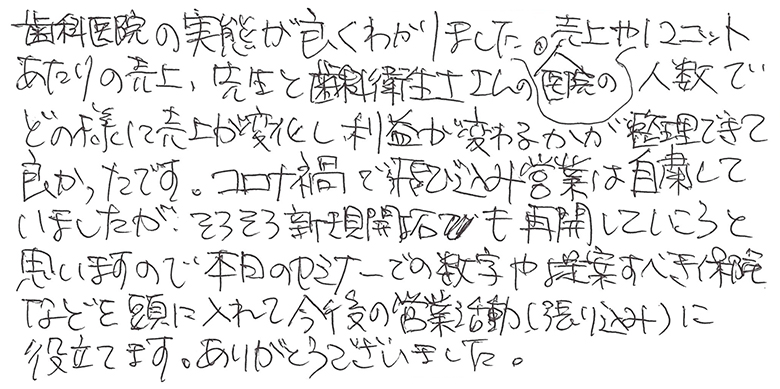 歯科医院の実態が良くわかりました。売上や1ユニット
あたりの売上、先生と歯科衛生士さんの医院の人数で
どの様に売上が変化し利益が変わるかが整理できて
良かったです。コロナ禍で飛び込み営業は自粛して
いましたが、そろそろ新規開拓も再開していこうと
思いますので本日のセミナーでの数字や提案すべき保険
などを頭に入れて今後の営業活動(張り込み)に
役立てます。ありがとうございました。